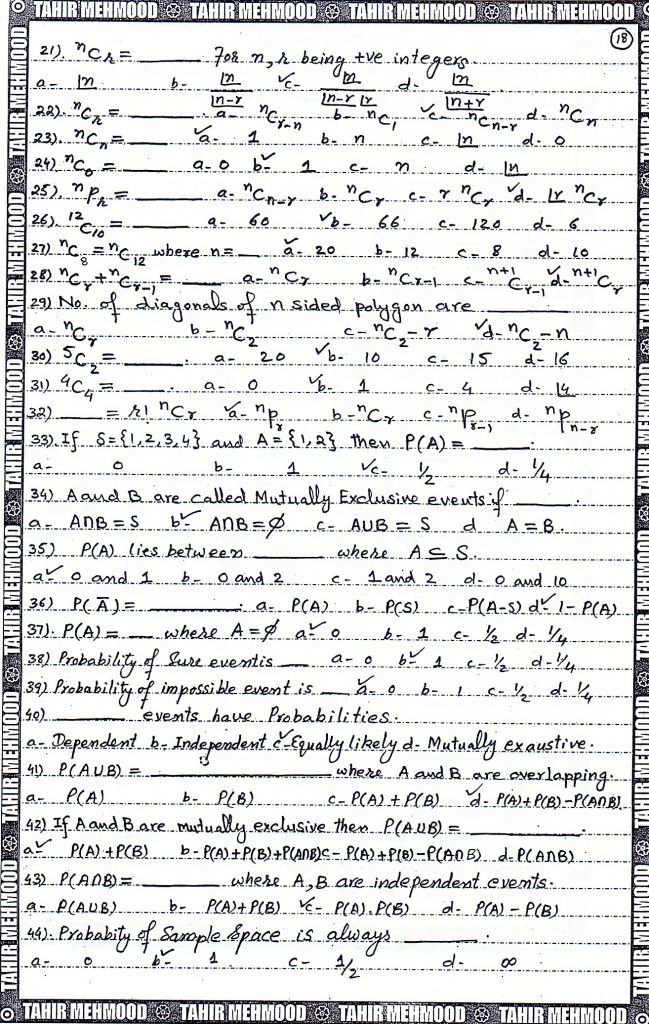 TAHIR MEHMOOD TAHIR MEHMOOD TAHIR MEHMOOD TAHIR MEHMOOD
18
21). ⁿCr = ______ For n, r being +ve integers.
a- |n b- |n/|n-r ✓c- |n/|n-r |r d- |n/|n+r
22). ⁿCr = ______ a- ⁿCr-n b- ⁿC1 ✓c- ⁿCn-r d- ⁿCn
23). ⁿCn = ______ ✓a- 1 b- n c- |n d- 0
24) ⁿC0 = ______ a- 0 b✓- 1 c- n d- |n
25). ⁿPr = ______ a- ⁿCn-r b- ⁿCr c- r ⁿCr ✓d- |r ⁿCr
26). ¹²C10 = ______ a- 60 ✓b- 66 c- 120 d- 6
27) ⁿC8 = ⁿC12 where n = __ ✓a- 20 b- 12 c- 8 d- 10
28) ⁿCr + ⁿCr-1 = ______ a- ⁿCr b- ⁿCr-1 c- ⁿ⁺¹Cr-1 ✓d- ⁿ⁺¹Cr
29) No. of diagonals of n sided polygon are ______
a- ⁿCr b- ⁿC2 c- ⁿC2 - r ✓d- ⁿC2 - n
30) ⁵C2 = ______. a- 20 ✓b- 10 c- 15 d- 16
31) ⁴C4 = ______. a- 0 ✓b- 1 c- 4 d- |4
32) ______ = r! ⁿCr ✓a- ⁿPr b- ⁿCr c- ⁿPr-1 d- ⁿPn-r
33). If S = {1,2,3,4} and A = {1,2} then P(A) = ______.
a- 0 b- 1 ✓c- 1/2 d- 1/4
34) A and B are called Mutually Exclusive events if ______.
a- A∩B = S b✓- A∩B = ∅ c- AUB = S d A = B.
35) P(A) lies between ______ where A ⊆ S.
a✓ 0 and 1 b- 0 and 2 c- 1 and 2 d- 0 and 10
36) P(Ā) = ______. a- P(A) b- P(S) c- P(A-S) d✓ 1-P(A)
37). P(A) = __ where A = ∅ a✓ 0 b- 1 c- 1/2 d- 1/4
38) Probability of Sure event is __ a- 0 b✓ 1 c- 1/2 d- 1/4
39) Probability of impossible event is __ ✓a- 0 b- 1 c- 1/2 d- 1/4
40) ______ events have Probabilities.
a- Dependent b- Independent c✓ Equally likely d- Mutually exaustive.
41) P(AUB) = ______ where A and B are overlapping.
a- P(A) b- P(B) c- P(A) + P(B) ✓d- P(A)+P(B)-P(A∩B)
42) If A and B are mutually exclusive then P(AUB) = ______.
a✓ P(A)+P(B) b- P(A)+P(B)+P(A∩B) c- P(A)+P(B)-P(A∩B) d- P(A∩B)
43) P(A∩B) = ______ where A, B are independent events.
a- P(AUB) b- P(A)+P(B) ✓c- P(A).P(B) d- P(A) - P(B)
44). Probabity of Sample Space is always ______.
a- 0 b✓- 1 c- 1/2 d- ∞
TAHIR MEHMOOD TAHIR MEHMOOD TAHIR MEHMOOD TAHIR MEHMOOD